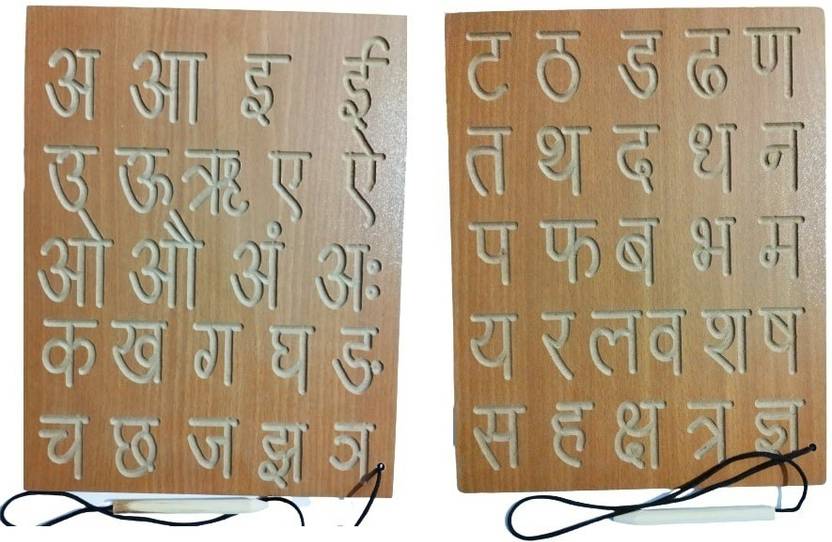 अ आ इ ई
उ ऊ ऋ ए ऐ
ओ औ अं अः
क ख ग घ ङ
च छ ज झ ञ
ट ठ ड ढ ण
त थ द ध न
प फ ब भ म
य र ल व श ष
स ह क्ष त्र ज्ञ